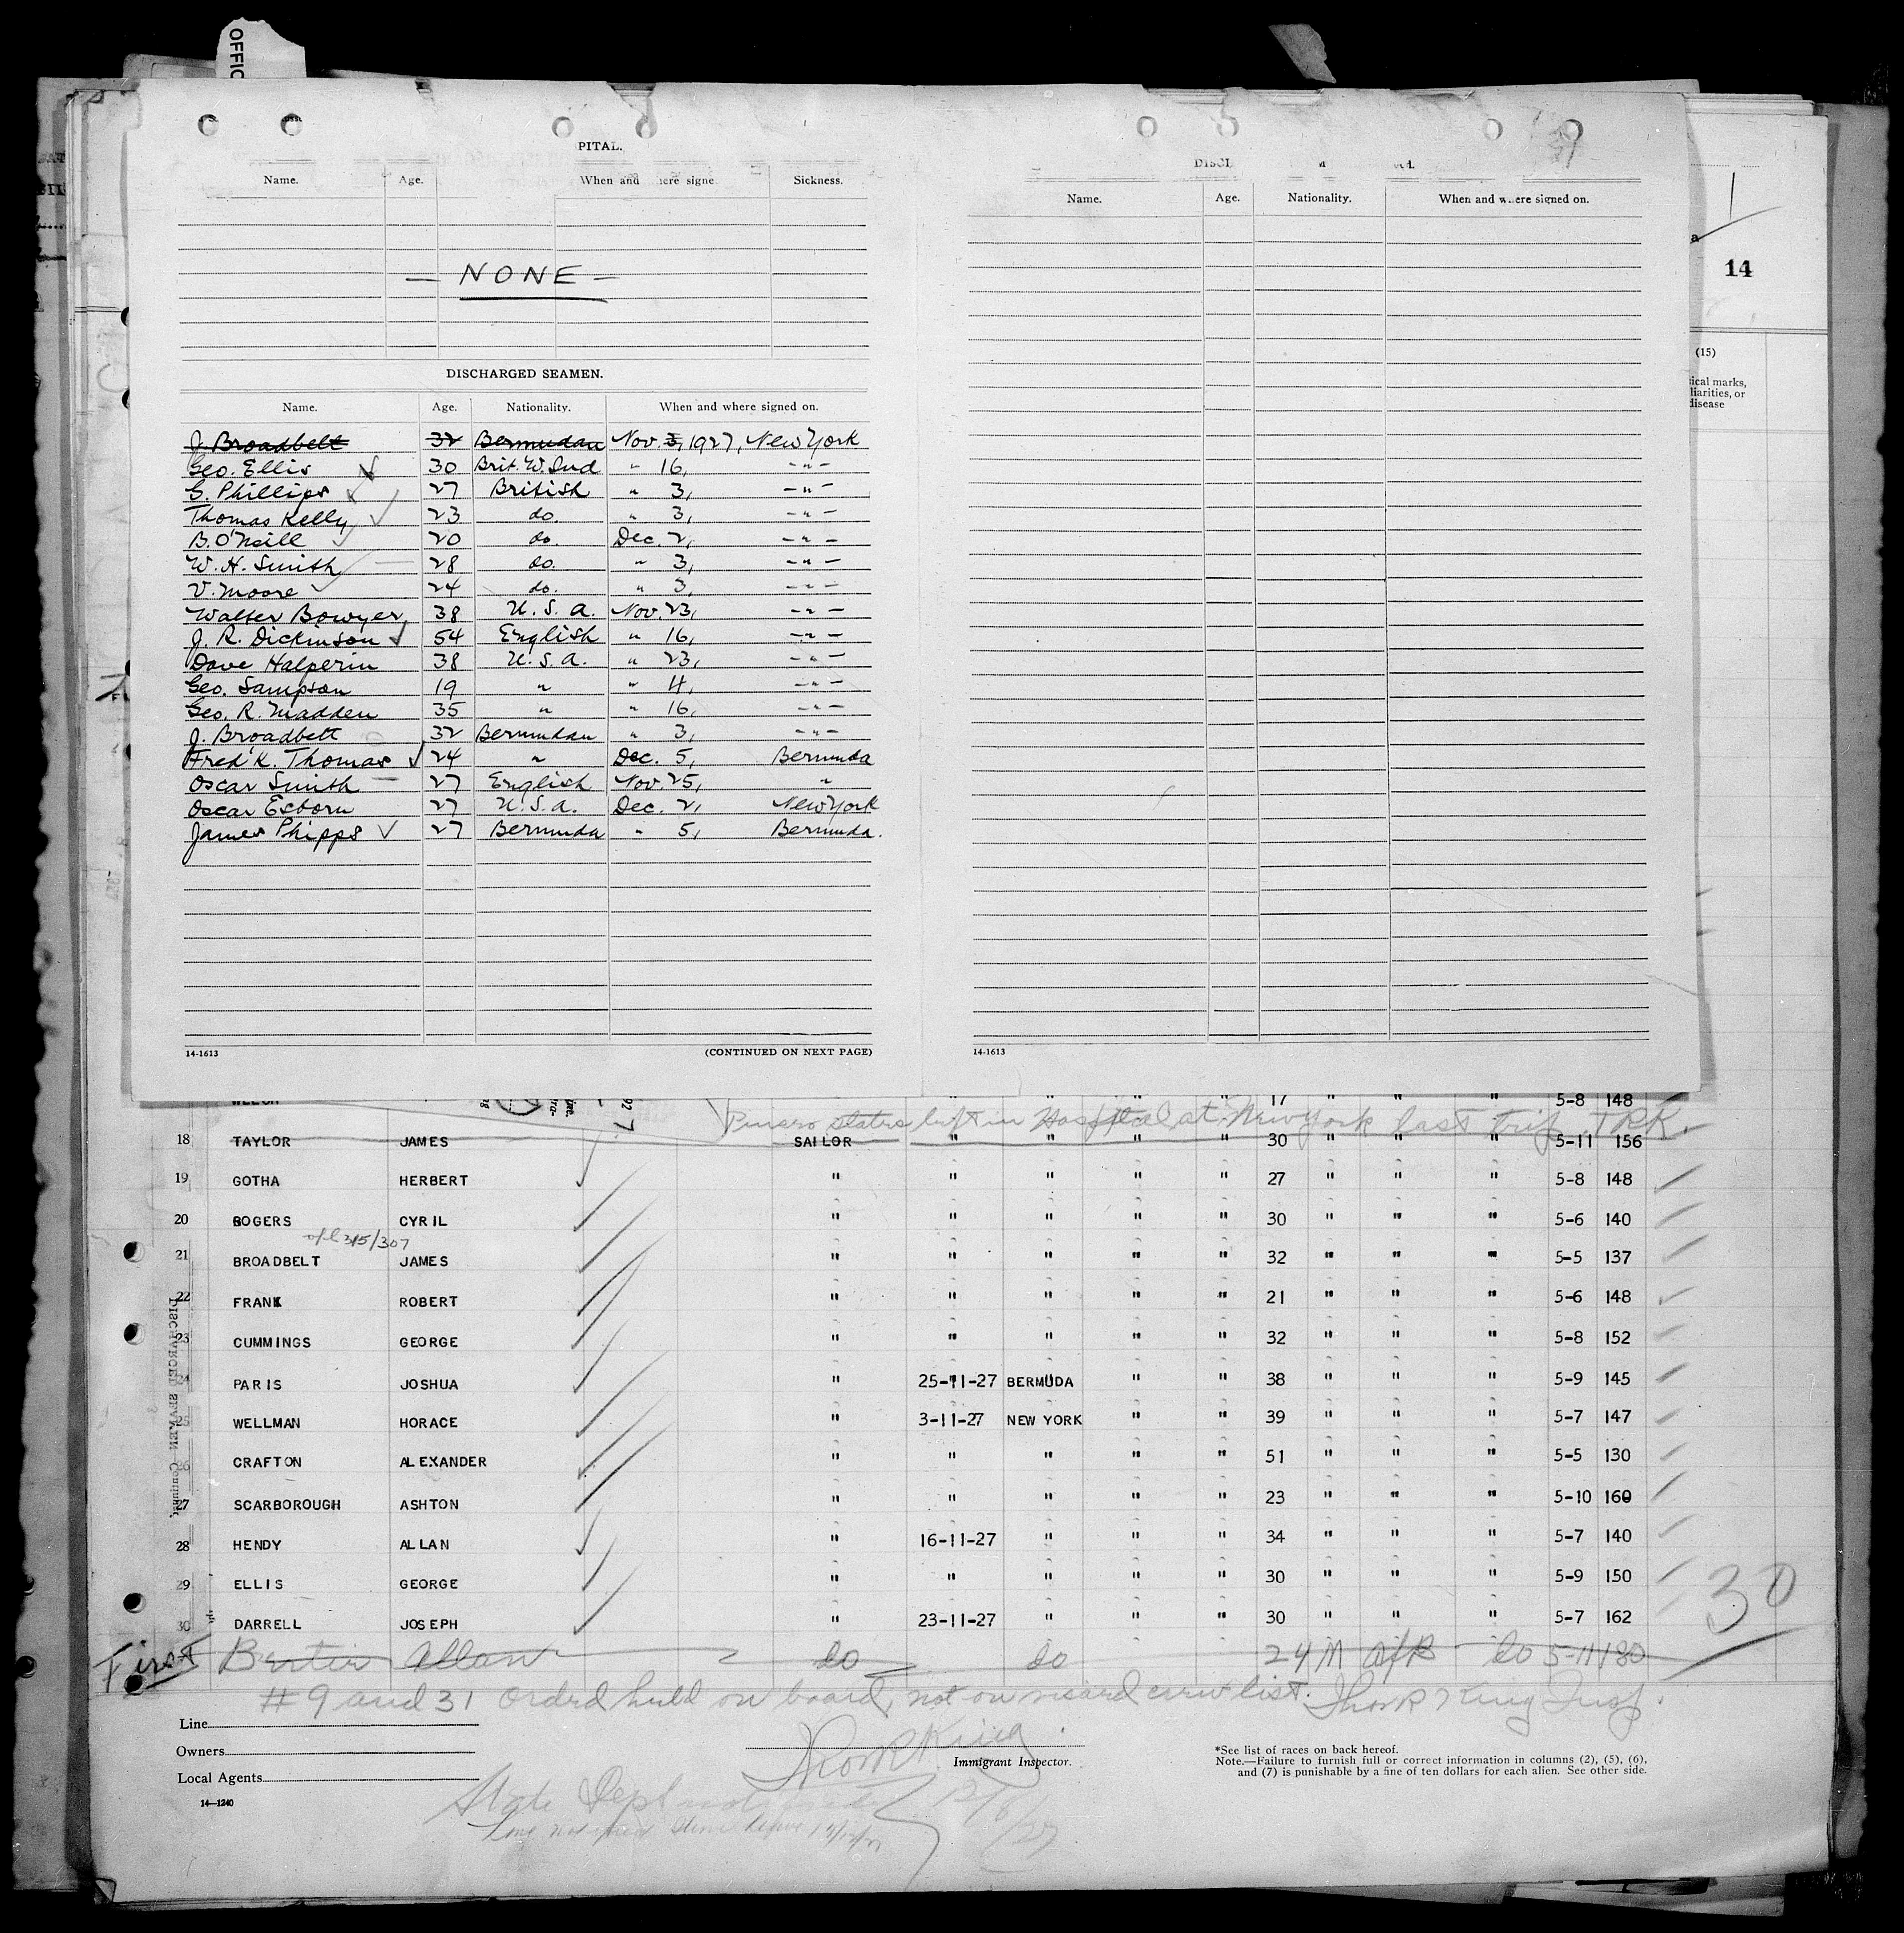 OFFIC
PITAL.
Name. Age. When and here signe Sickness.
— NONE —
DISCHARGED SEAMEN.
Name. Age. Nationality. When and where signed on.
J. Broadbelt 32 Bermudan Nov. 3, 1927, New York
Geo. Ellis 30 Brit. W. Ind " 16, -"-
G. Phillips 27 British " 3, -"-
Thomas Kelly 23 do. " 3, -"-
B. O'Neill 20 do. Dec. 2, -"-
W. H. Smith 28 do. " 3, -"-
V. Moore 24 do. " 3, -"-
Walter Bowyer 38 U. S. A. Nov. 23, -"-
J. R. Dickinson 54 English " 16, -"-
Dave Halperin 38 U. S. A. " 23, -"-
Geo. Sampson 19 " " 4, -"-
Geo. R. Madden 35 " " 16, -"-
J. Broadbelt 32 Bermudan " 3, -"-
Fred'k. Thomas 24 " Dec. 5, Bermuda
Oscar Smith 27 English Nov. 25, "
Oscar Esborn 27 U. S. A. Dec. 2, New York
James Phipps 27 Bermuda " 5, Bermuda.
14-1613 (CONTINUED ON NEXT PAGE)
Name. Age. Nationality. When and where signed on.
14-1613
1
14
(15)
ical marks,
liarities, or
disease
WELCH 17 " " " 5-8 148
left in Hospital at New York last trip. TRK.
18 TAYLOR JAMES SAILOR " " " " 30 " " " 5-11 156
19 GOTHA HERBERT " " " " " 27 " " " 5-8 148
20 BOGERS CYRIL " " " " " 30 " " " 5-6 140
315/307
21 BROADBELT JAMES " " " " " 32 " " " 5-5 137
22 FRANK ROBERT " " " " " 21 " " " 5-6 148
23 CUMMINGS GEORGE " " " " " 32 " " " 5-8 152
24 PARIS JOSHUA " 25-11-27 BERMUDA " " 38 " " " 5-9 145
25 WELLMAN HORACE " 3-11-27 NEW YORK " " 39 " " " 5-7 147
26 CRAFTON ALEXANDER " " " " " 51 " " " 5-5 130
27 SCARBOROUGH ASHTON " " " " " 23 " " " 5-10 160
28 HENDY ALLAN " 16-11-27 " " " 34 " " " 5-7 140
29 ELLIS GEORGE " " " " " 30 " " " 5-9 150
30 DARRELL JOSEPH " 23-11-27 " " " 30 " " " 5-7 162
30
First Allan do do 24 M do 5-11 180
#9 and 31 ordrd held on board, not on crew list. Thos R King Insp.
Line
Owners
Local Agents
14—1240
Thos R King
Immigrant Inspector.
State Dept 12/6/27
*See list of races on back hereof.
Note.—Failure to furnish full or correct information in columns (2), (5), (6),
and (7) is punishable by a fine of ten dollars for each alien. See other side.